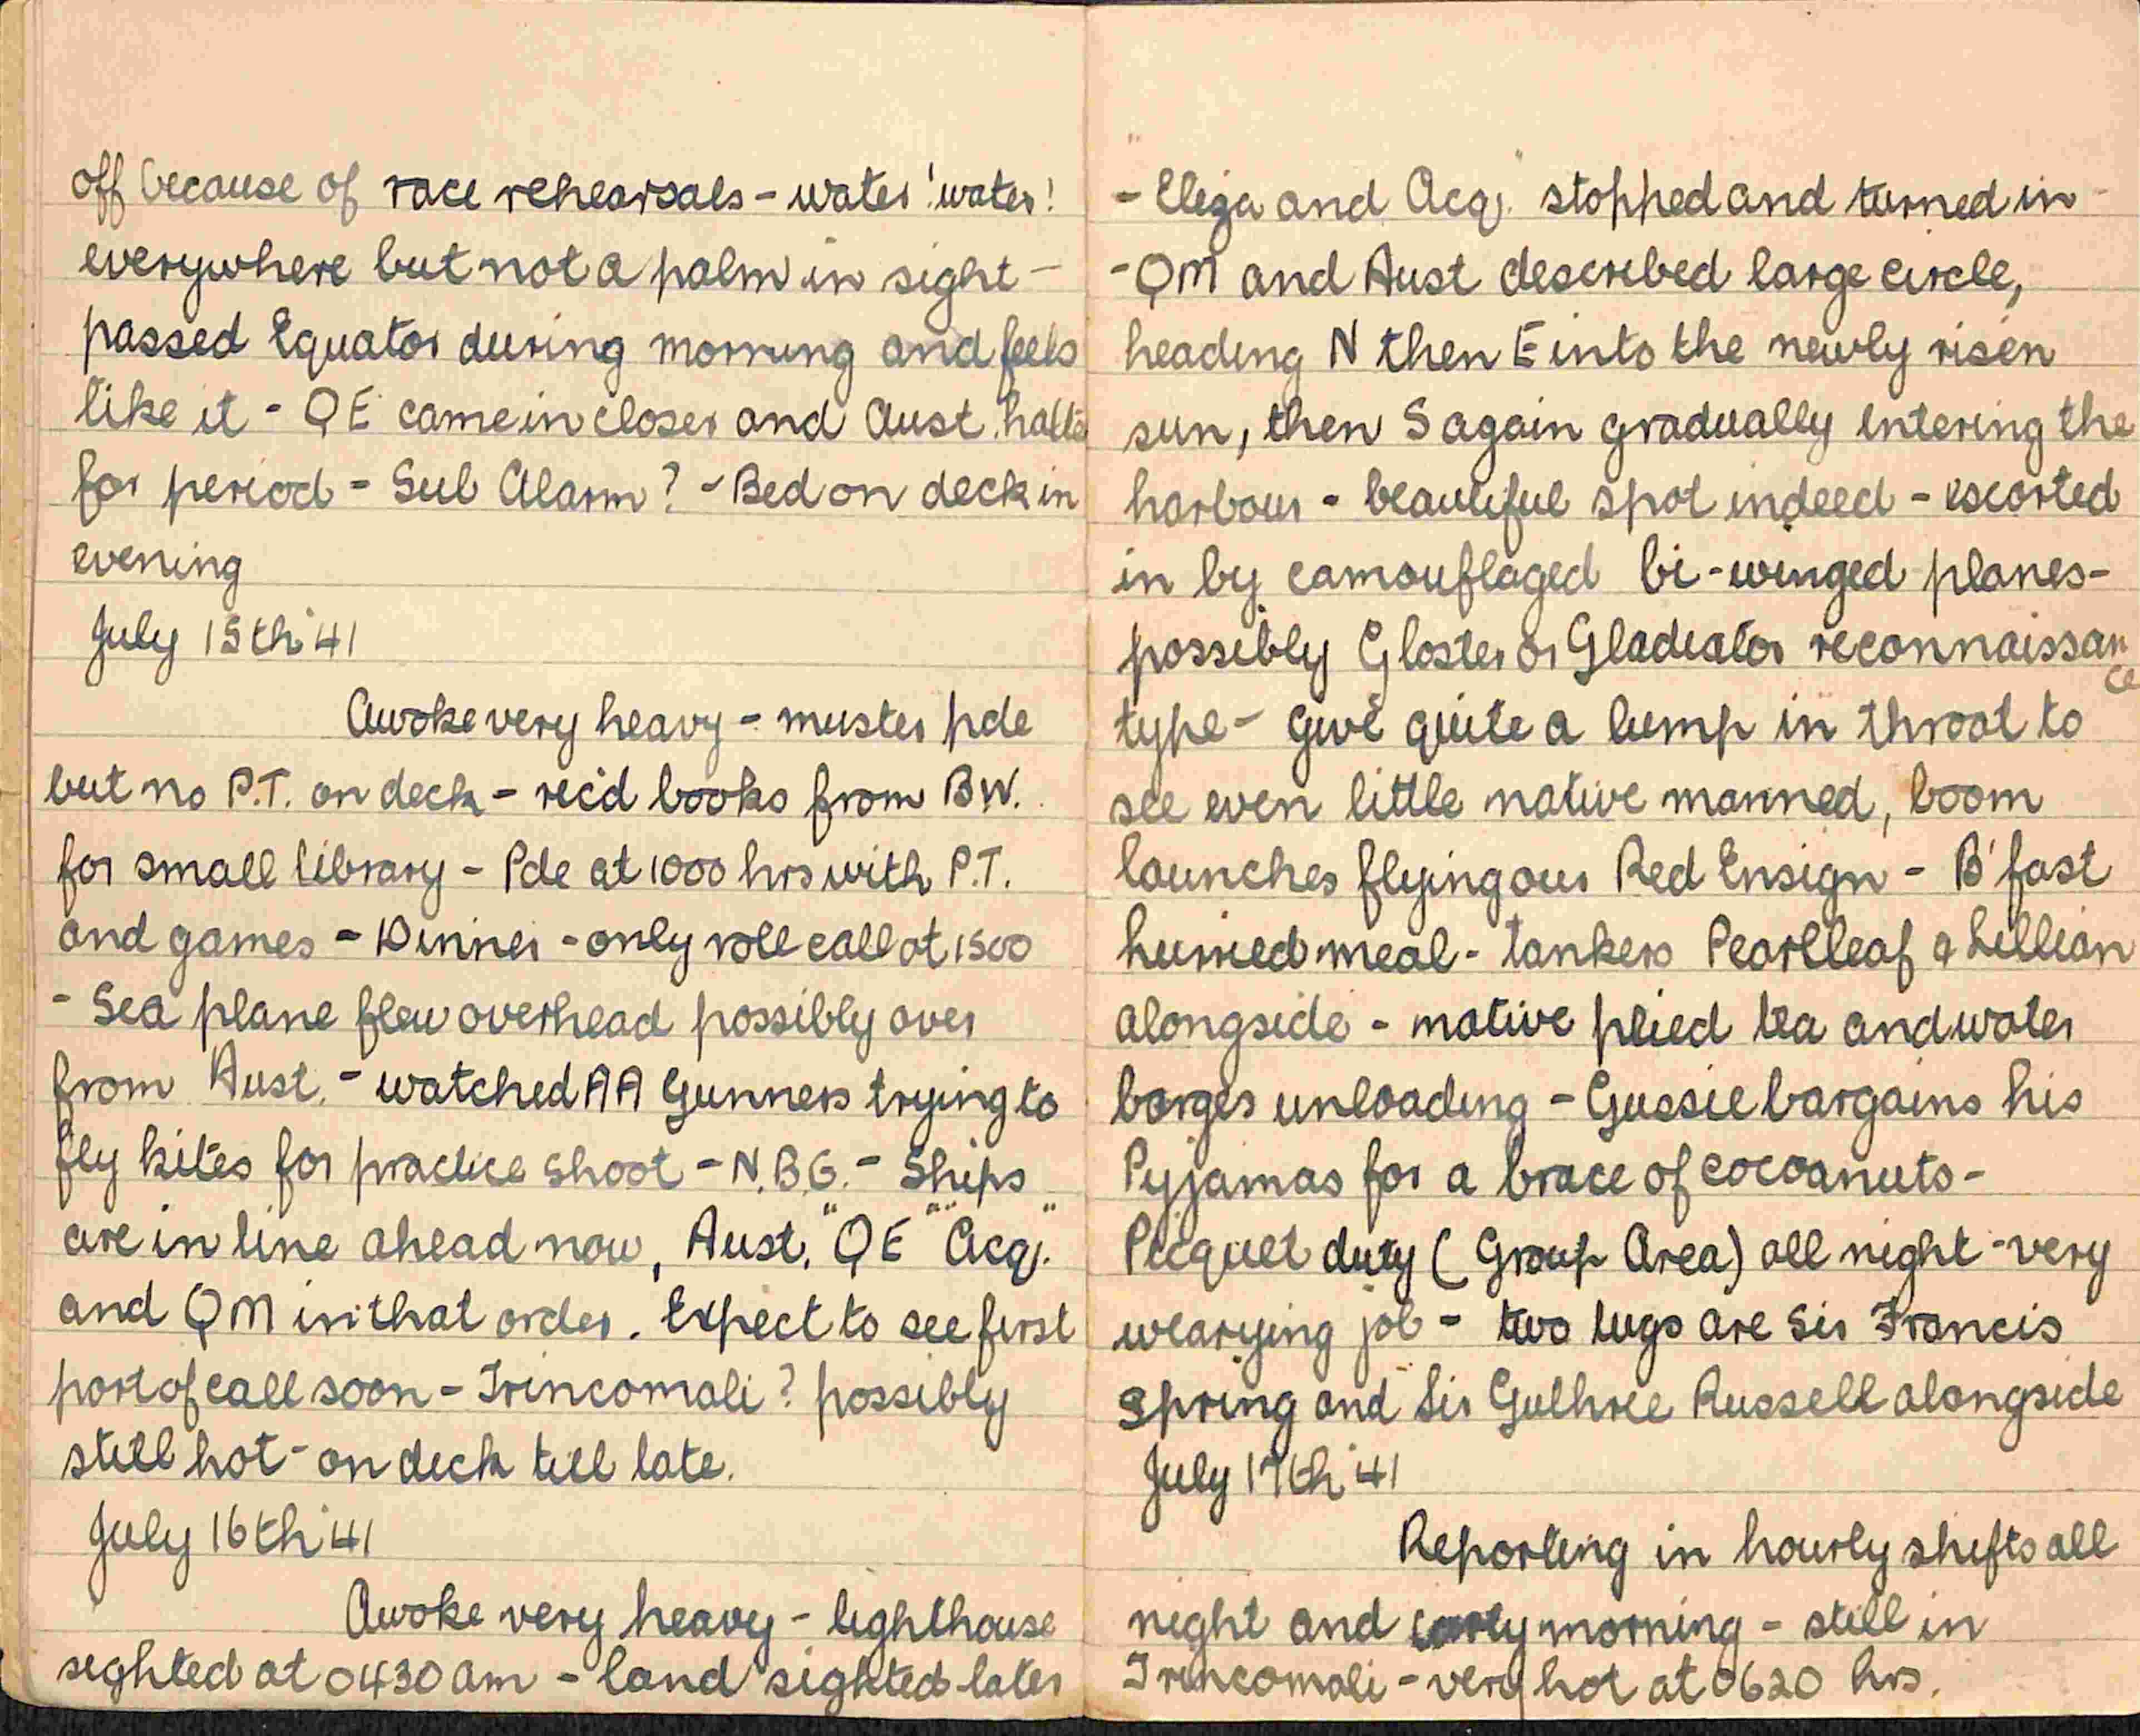 off because of race rehearsals - water! water!
everywhere but not a palm in sight -
passed Equator during morning and feels
like it - QE came in closer and Aust. halted
for period - Sub Alarm? - Bed on deck in
evening
July 15th '41
Awoke very heavy - muster pde
but no P.T. on deck - rec'd books from BW.
for small library - Pde at 1000 hrs with P.T.
and games - Dinner - only roll call at 1500
- Sea plane flew overhead possibly over
from Aust. - watched AA Gunners trying to
fly kites for practice shoot - N.B.G. - Ships
are in line ahead now, Aust. "QE" "Acq."
and QM in that order. Expect to see first
port of call soon - Trincomali? possibly
still hot - on deck till late.
July 16th '41
Awoke very heavy - lighthouse
sighted at 0430 am - land sighted later
- "Eliza and Acq." stopped and turned in -
- QM and Aust described large circle,
heading N then E into the newly risen
sun, then S again gradually entering the
harbour - beautiful spot indeed - escorted
in by camouflaged bi-winged planes -
possibly Gloster or Gladiator reconnaissance
type - give quite a lump in throat to
see even little native manned, boom
launches flying our Red Ensign - B'fast
hurried meal - tankers Pearlleaf & Lillian
alongside - native plied tea and water
barges unloading - Gussie bargains his
Pyjamas for a brace of cocoanuts -
Picquet duty (Group Area) all night - very
wearying job - two tugs are Sir Francis
Spring and Sir Guthrie Russell alongside
July 17th '41
Reporting in hourly shifts all
night and early morning - still in
Trincomali - very hot at 0620 hrs.